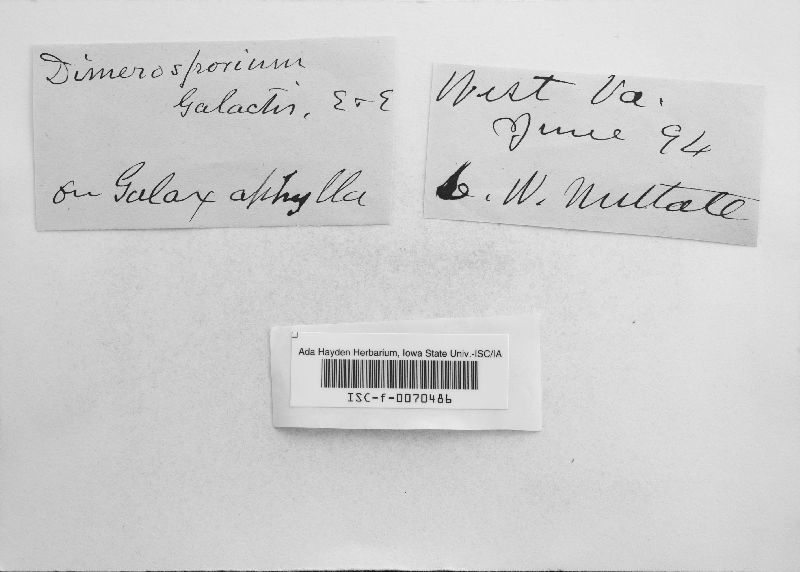 Dimerosporium
Galactis, E & E
on Galax aphylla
West Va.
June 94
L. W. Nuttall
Ada Hayden Herbarium, Iowa State Univ.-ISC/IA
ISC-f-0070486